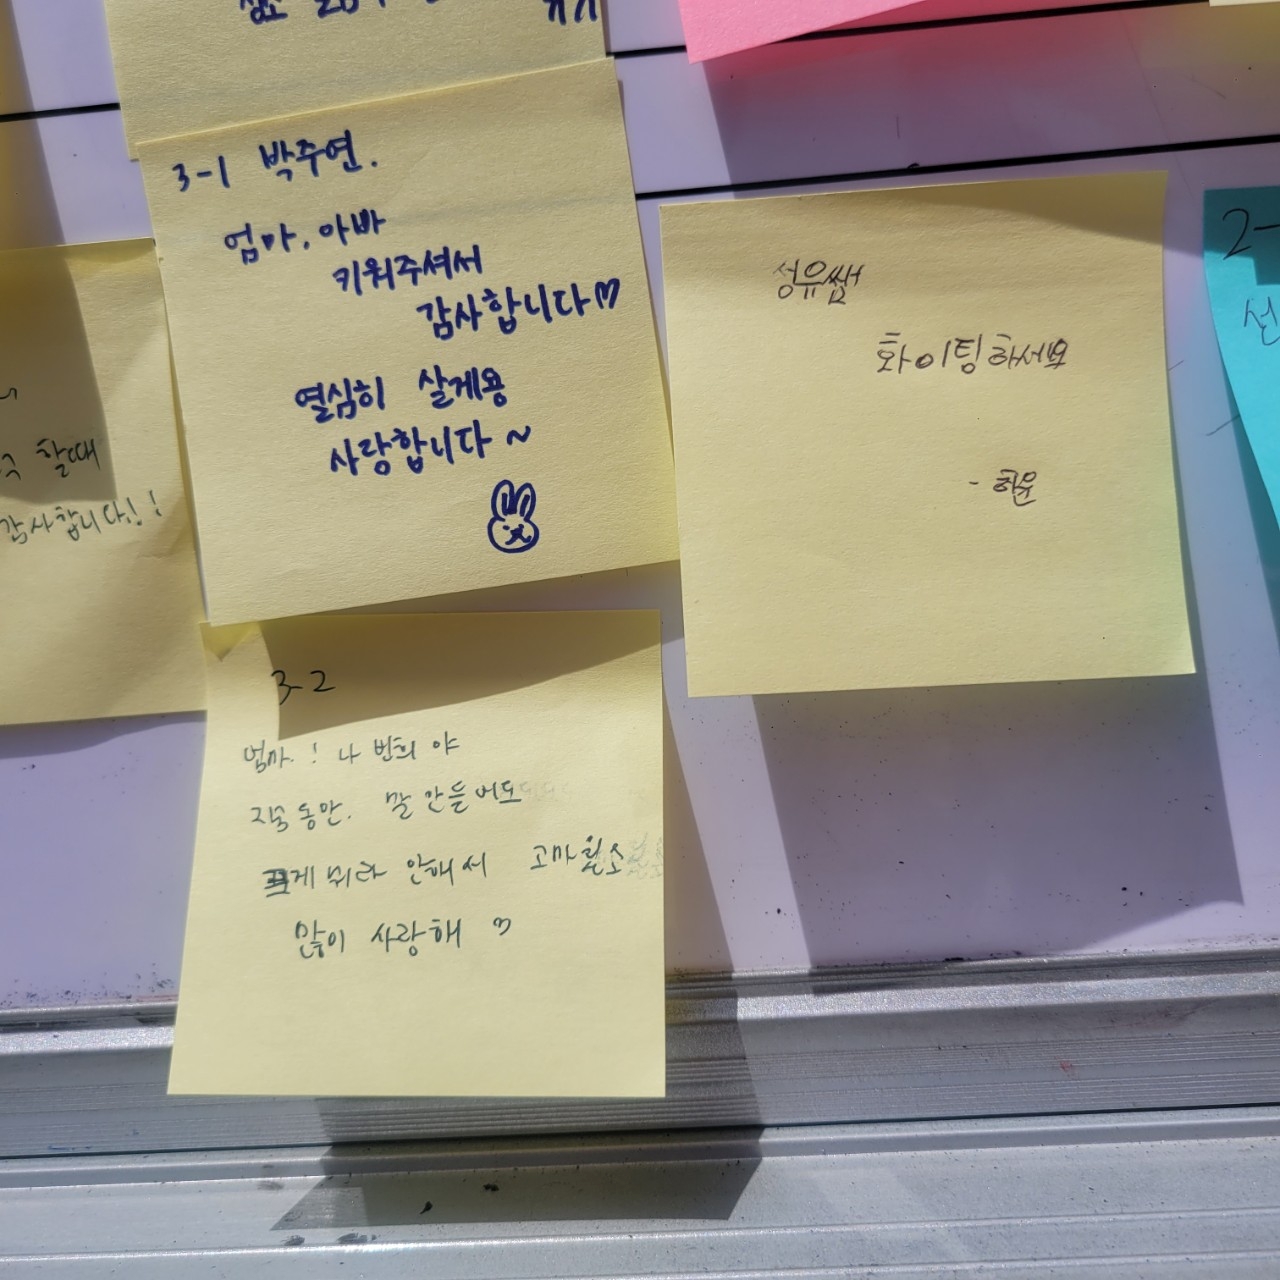 3-1 박주연.
엄마, 아바
키워주셔서
감사합니다♡
열심히 살게용
사랑합니다~
성유쌤
화이팅하세요
- 하윤
할때
감사합니다!!
3-2
엄마.! 나 번희 야
지속동안. 말 안들어도
게 뭐라 안해서 고마웠소
많이 사랑해 ♡
2-
선